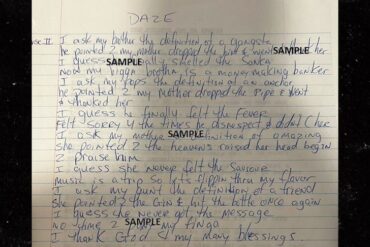 DAZE
I ask my brotha the definition of a gangsta
he pointed 2 my mother dropped the & went 2 her
SAMPLE
I guess smelled the
SAMPLE
now my bigga brotha is a money making banker
I ask my pops the definition of an
he pointed 2 my mother dropped the pipe & went
& thanked her
I guess he finally felt the Fever
Felt sorry 4 the times he disrespect & didn't
I ask my mother definition of amazing
SAMPLE
she pointed 2 the heavens raised her head begin
2 praise him
I guess she never felt the
music is a trip so its flippin thru my flavor
I ask my aunt the definition of a friend
She pointed 2 the Gin & hit the bottle once again
I guess she never got the message
no time 2 my finga
SAMPLE
I thank God 4 my many blessings